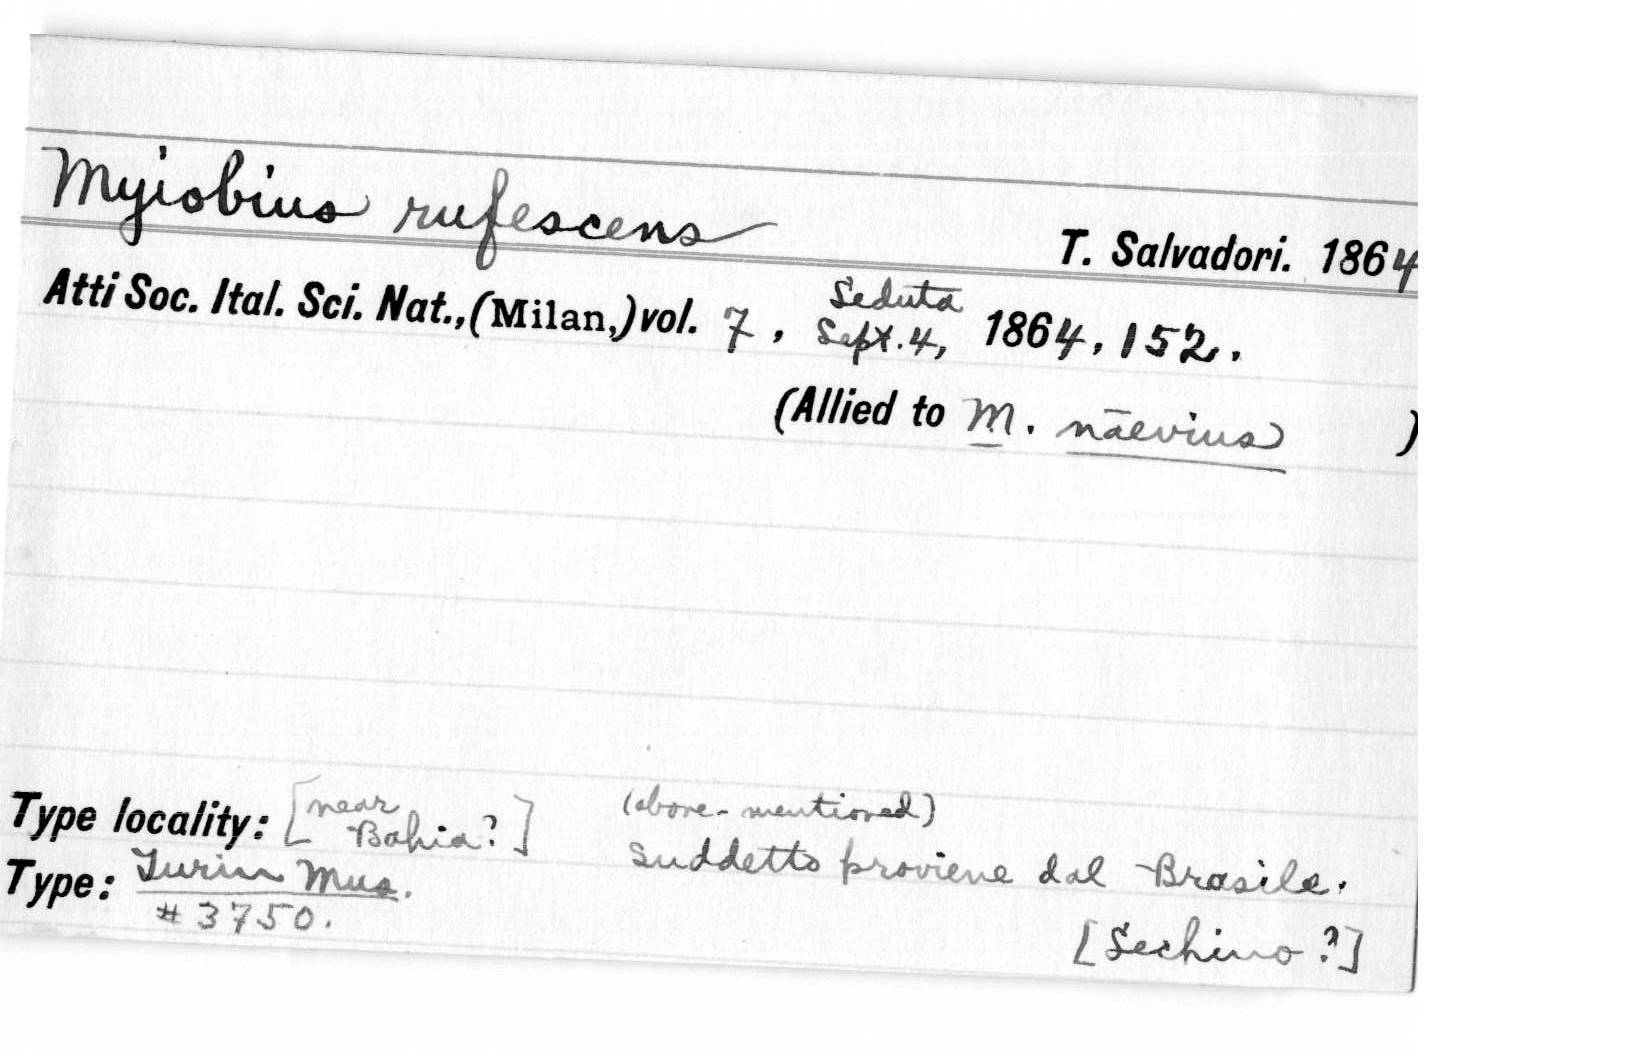 Myiobius rufescens
T. Salvadori. 1864
Atti Soc. Ital. Sci. Nat., (Milan,) vol. 7, Seduta Sept. 4, 1864, 152.
(Allied to M. nāevius )
Type locality: [near Bahia?] (above-mentioned)
suddetto proviene dal Brasile.
Type: Turin Mus.
#3750.
[Sechino?]